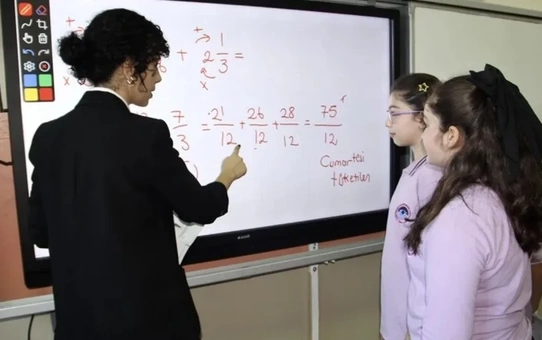 + 2 1/3 =
7/3 = 21/12 + 26/12 + 28/12 = 75/12
Cumartesi
tüketilen